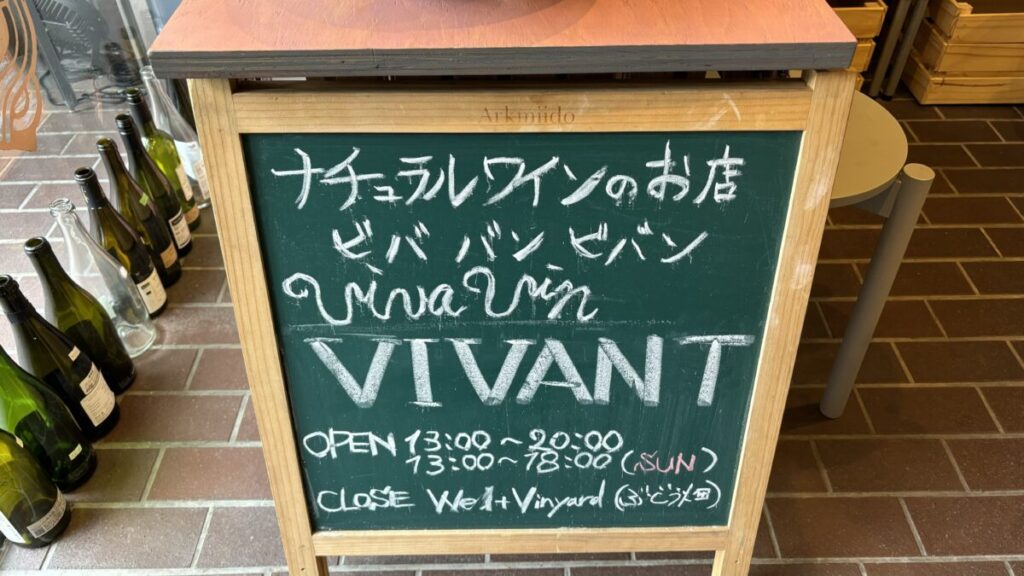 Arkmiido
ナチュラルワインのお店
ビバ バン ビバン
Viva Vin
VIVANT
OPEN 13:00~20:00
13:00~18:00 (SUN)
CLOSE Wed+Vinyard (ぶどう畑)